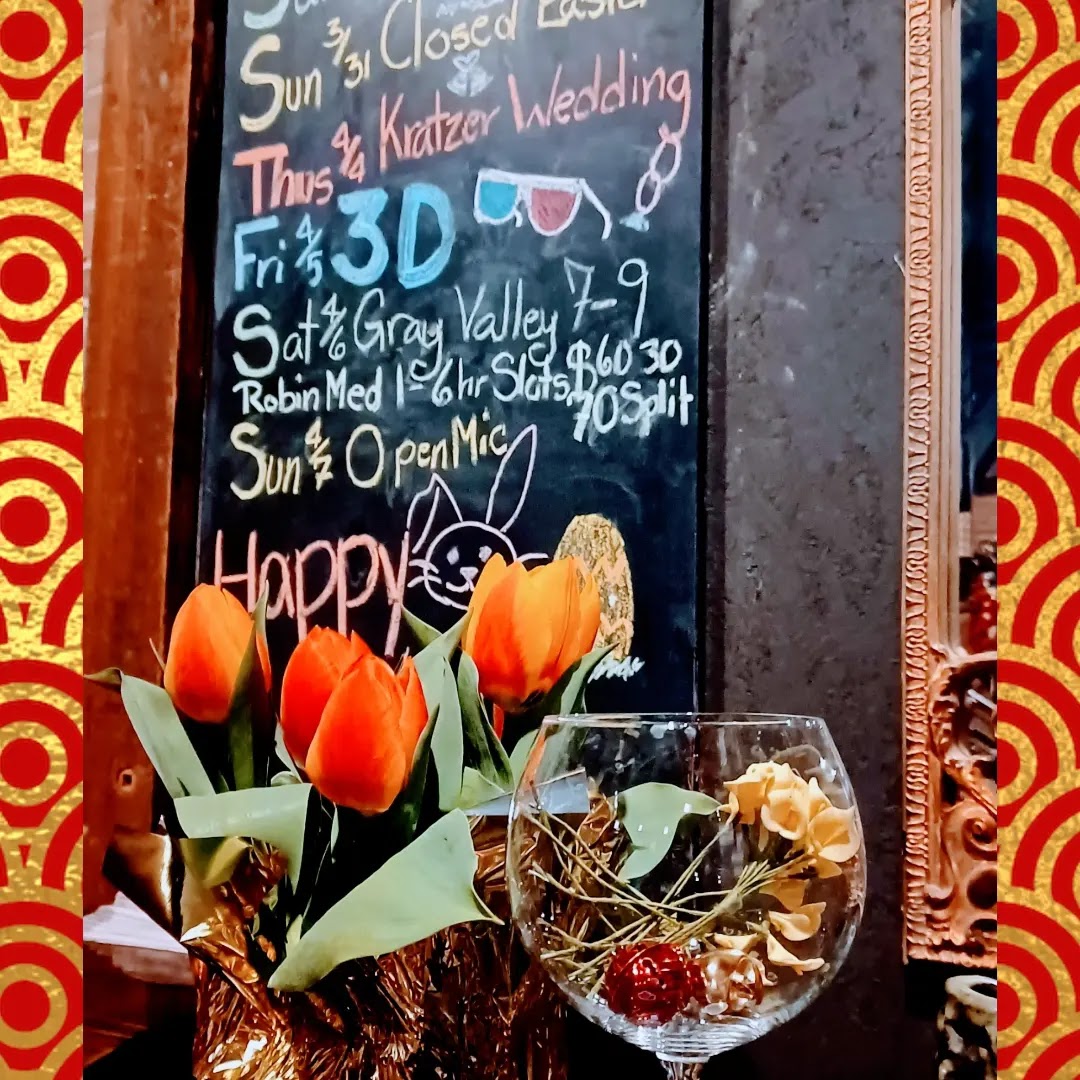 Sun 3/31 Closed Easter
Thus 4/4 Kratzer Wedding
Fri 4/5 3D
Sat 4/6 Gray Valley 7-9
Robin Med 1-6 hr Slots, $60 30
70 Split
Sun 4/7 Open Mic
Happy